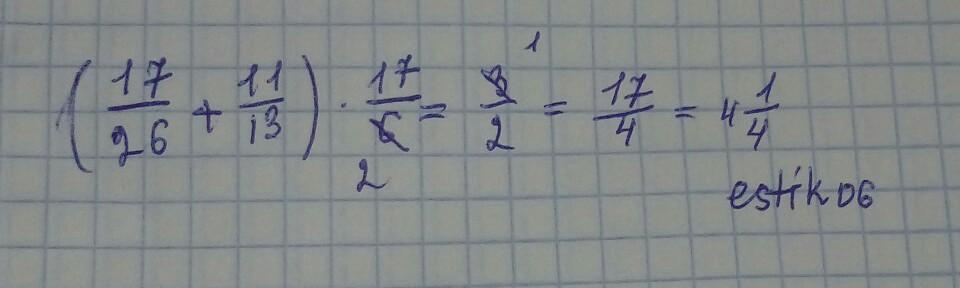 (17/26 + 11/13) · 17/6 = 3/2 = 17/4 = 4 1/4
2 1
estikos